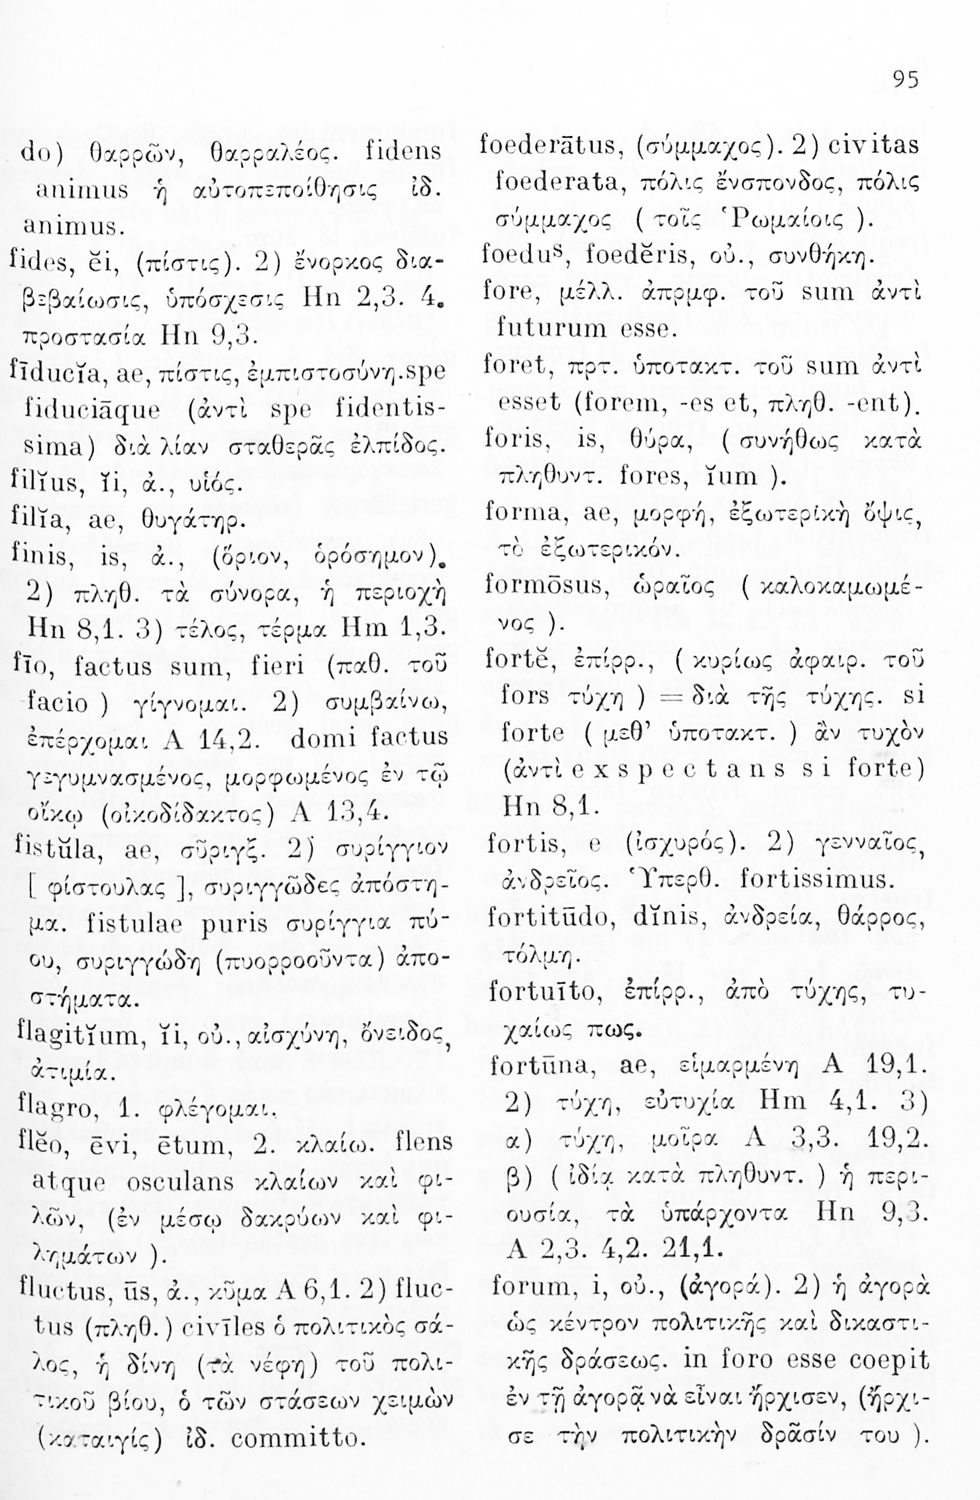 95
do) θαρρῶν, θαρραλέος. fidens
animus ἡ αὐτοπεποίθησις ἰδ.
animus.
fides, ĕi, (πίστις). 2) ἔνορκος δια-
βεβαίωσις, ὑπόσχεσις Hn 2,3. 4.
προστασία Hn 9,3.
fīducĭa, ae, πίστις, ἐμπιστοσύνη.spe
fiduciāque (ἀντὶ spe fidentis-
sima) διὰ λίαν σταθερᾶς ἐλπίδος.
filĭus, ĭi, ἀ., υἱός.
filĭa, ae, θυγάτηρ.
finis, is, ἀ., (ὅριον, ὁρόσημον).
2) πληθ. τὰ σύνορα, ἡ περιοχὴ
Hn 8,1. 3) τέλος, τέρμα Hm 1,3.
fīo, factus sum, fieri (παθ. τοῦ
facio ) γίγνομαι. 2) συμβαίνω,
ἐπέρχομαι A 14,2. domi factus
γεγυμνασμένος, μορφωμένος ἐν τῷ
οἴκῳ (οἰκοδίδακτος) A 13,4.
fistŭla, ae, σῦριγξ. 2) συρίγγιον
[ φίστουλας ], συριγγῶδες ἀπόστη-
μα. fistulae puris συρίγγια πύ-
ου, συριγγώδη (πυορροοῦντα) ἀπο-
στήματα.
flagitĭum, ĭi, οὐ., αἰσχύνη, ὄνειδος,
ἀτιμία.
flagro, 1. φλέγομαι.
flĕo, ēvi, ētum, 2. κλαίω. flens
atque osculans κλαίων καὶ φι-
λῶν, (ἐν μέσῳ δακρύων καὶ φι-
λημάτων ).
fluctus, ūs, ἀ., κῦμα A 6,1. 2) fluc-
tus (πληθ.) civīles ὁ πολιτικὸς σά-
λος, ἡ δίνη (τὰ νέφη) τοῦ πολι-
τικοῦ βίου, ὁ τῶν στάσεων χειμὼν
(καταιγίς) ἰδ. committo.
foederātus, (σύμμαχος). 2) civitas
foederata, πόλις ἔνσπονδος, πόλις
σύμμαχος ( τοῖς Ῥωμαίοις ).
foedus, foedĕris, οὐ., συνθήκη.
fore, μέλλ. ἀπρμφ. τοῦ sum ἀντὶ
futurum esse.
foret, πρτ. ὑποτακτ. τοῦ sum ἀντὶ
esset (forem, -es et, πληθ. -ent).
foris, is, θύρα, ( συνήθως κατὰ
πληθυντ. fores, ĭum ).
forma, ae, μορφή, ἐξωτερικὴ ὄψις,
τὸ ἐξωτερικόν.
formōsus, ὡραῖος ( καλοκαμωμέ-
νος ).
fortĕ, ἐπίρρ., ( κυρίως ἀφαιρ. τοῦ
fors τύχη ) = διὰ τῆς τύχης. si
forte ( μεθ’ ὑποτακτ. ) ἂν τυχὸν
(ἀντὶ exspectans si forte)
Hn 8,1.
fortis, e (ἰσχυρός). 2) γενναῖος,
ἀνδρεῖος. Ὑπερθ. fortissimus.
fortitūdo, dĭnis, ἀνδρεία, θάρρος,
τόλμη.
fortuīto, ἐπίρρ., ἀπὸ τύχης, τυ-
χαίως πως.
fortūna, ae, εἱμαρμένη A 19,1.
2) τύχη, εὐτυχία Hm 4,1. 3)
α) τύχη, μοῖρα A 3,3. 19,2.
β) ( ἰδίᾳ κατὰ πληθυντ. ) ἡ περι-
ουσία, τὰ ὑπάρχοντα Hn 9,3.
A 2,3. 4,2. 21,1.
forum, i, οὐ., (ἀγορά). 2) ἡ ἀγορὰ
ὡς κέντρον πολιτικῆς καὶ δικαστι-
κῆς δράσεως. in foro esse coepit
ἐν τῇ ἀγορᾷ νὰ εἶναι ἤρχισεν, (ἤρχι-
σε τὴν πολιτικὴν δρᾶσίν του ).